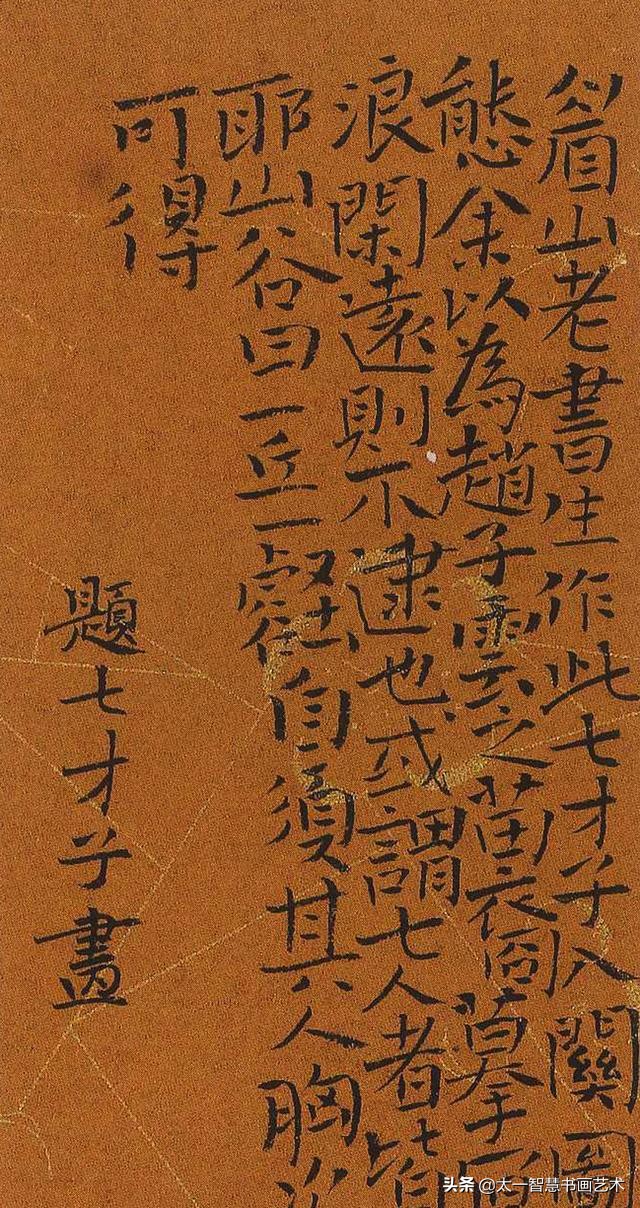 眉山老書生作此七才子入關圖
態余以為趙子雲之苗裔摹
浪閑遠則不逮也或謂七人者皆
耶山谷曰一丘一壑自須其人胸次
可得
題七才子畫
头条 @太一智慧书画艺术